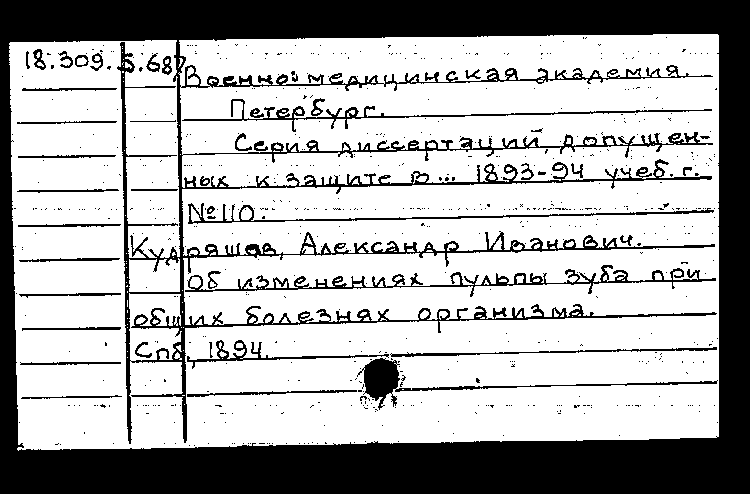 18.309.5.687
Военно-медицинская академия.
Петербург.
Серия диссертаций, допущен-
ных к защите в... 1893-94 учеб. г.
№110.
Кудряшов, Александр Иванович.
Об изменениях пульпы зуба при
общих болезнях организма.
Спб., 1894.